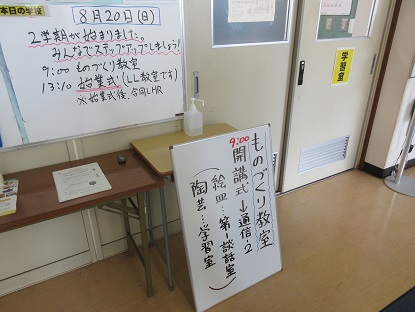 本日の学校
8月20日(日)
2学期が始まりました。
みんなでステップアップしましょう!
9:00 ものづくり教室
13:10 始業式(LL教室です)
※始業式後、合同LHR
学習室
ものづくり教室
9:00
開講式→通信・2
絵皿…第1談話室
(陶芸…学習室)